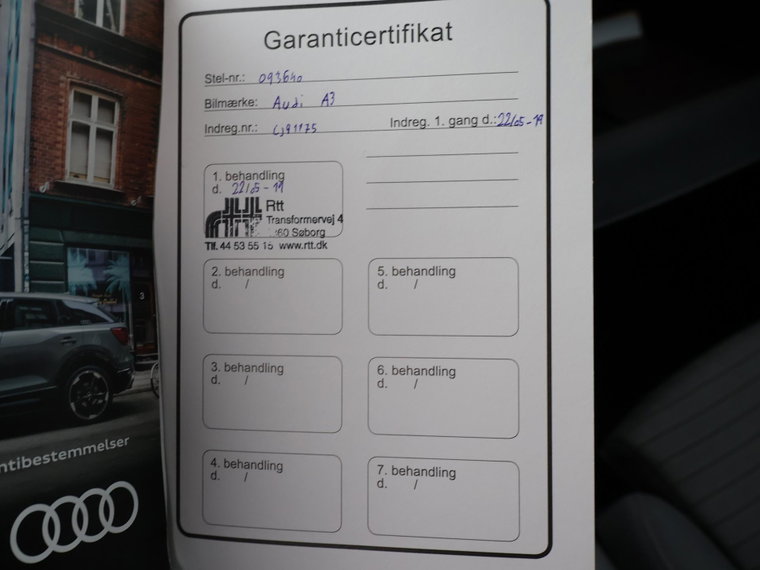 Garanticertifikat
Stel-nr.: 093640
Bilmærke: Audi A3
Indreg.nr.: Indreg. 1. gang d.: 22/05-19
1. behandling
d. 22/05-19
Rtt
Transformervej 4
Søborg
Tlf. 44 53 55 15 www.rtt.dk
2. behandling
d. /
5. behandling
d. /
3. behandling
d. /
6. behandling
d. /
4. behandling
d. /
7. behandling
d. /
ntibestemmelser
3